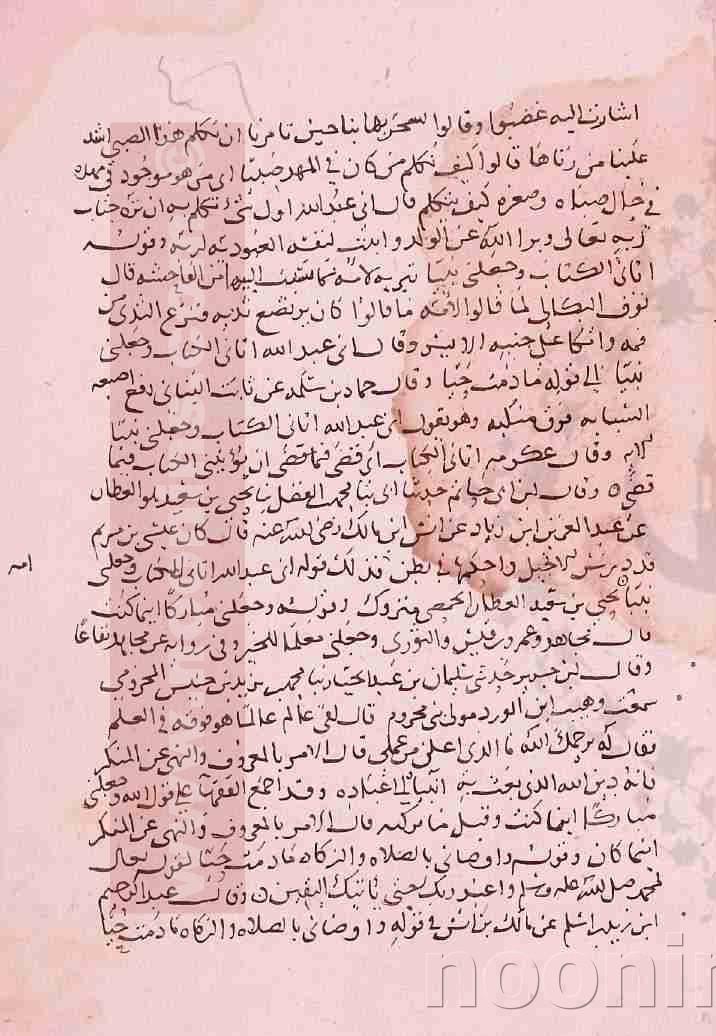 اشارت اليه غضبوا وقالوا لسخريتها بنا حين تامرنا ان نكلم هذا الصبي اشد
علينا من زناها قالوا كيف نكلم من كان في المهد صبيا اي من هو موجود في مهده
في حال صباه وصغره كيف يتكلم قال اني عبد الله اول شي تكلم به ان نزه جناب
ربه تعالى وبرا الله عن الولد واثبت لنفسه العبودية لربه وقوله
اتاني الكتاب وجعلني نبيا تبريه لامه مما نسبت اليه من الفاحشة قال
نوف البكالي لما قالوا لامه ما قالوا كان يرتضع ثديه فنزع الثدي من
فمه واتكا على جنبه الايسر وقال اني عبد الله اتاني الكتاب وجعلني
نبيا الى قوله ما دمت حيا وقال حماد بن سلمه عن ثابت البناني رفع اصبعه
السبابه فوق منكبه وهو يقول اني عبد الله اتاني الكتاب وجعلني نبيا
الايه وقال عكرمه اتاني الكتاب اي قضى فيما قضى ان يؤتيني الكتاب فيما
قضى وقال ابن ابي حاتم حدثنا ابي ثنا محمد المصفى ثنا يحيى بن سعيد هو العطار
عن عبد العزيز ابن زياد عن انس ابن مالك رضي الله عنه قال كان عيسى بن مريم
قد درس الانجيل واحكمها في بطن امه فذلك قوله اني عبد الله اتاني الكتاب وجعلني
نبيا يحيى بن سعيد العطار الحمصي متروك وقوله وجعلني مباركا اينما كنت
قال مجاهد وعمرو بن قيس والثوري وجعلني معلما للخير وفي روايه عن مجاهد نفاعا
وقال ابن جرير حدثني سليمان بن عبد الجبار ثنا محمد بن يزيد بن خنيس المخزومي
سمعت وهيب ابن الورد مولى بني مخزوم قال لقي عالم عالما هو فوقه في العلم
فقال له يرحمك الله ما الذي اعلن من عملي قال الامر بالمعروف والنهي عن المنكر
فانه دين الله الذي بعث به انبياه الى عباده وقد اجمع الفقها على قول الله وجعلني
مباركا اينما كنت وقيل ما بركته قال الامر بالمعروف والنهي عن المنكر
اينما كان وقوله واوصاني بالصلاه والزكاه ما دمت حيا لقوله تعالى
لمحمد صلى الله عليه وسلم واعبد ربك حتى ياتيك اليقين وقال عبد الرحمن
ابن زيد بن اسلم عن مالك بن انس في قوله واوصاني بالصلاه والزكاه ما دمت حيا
noonin